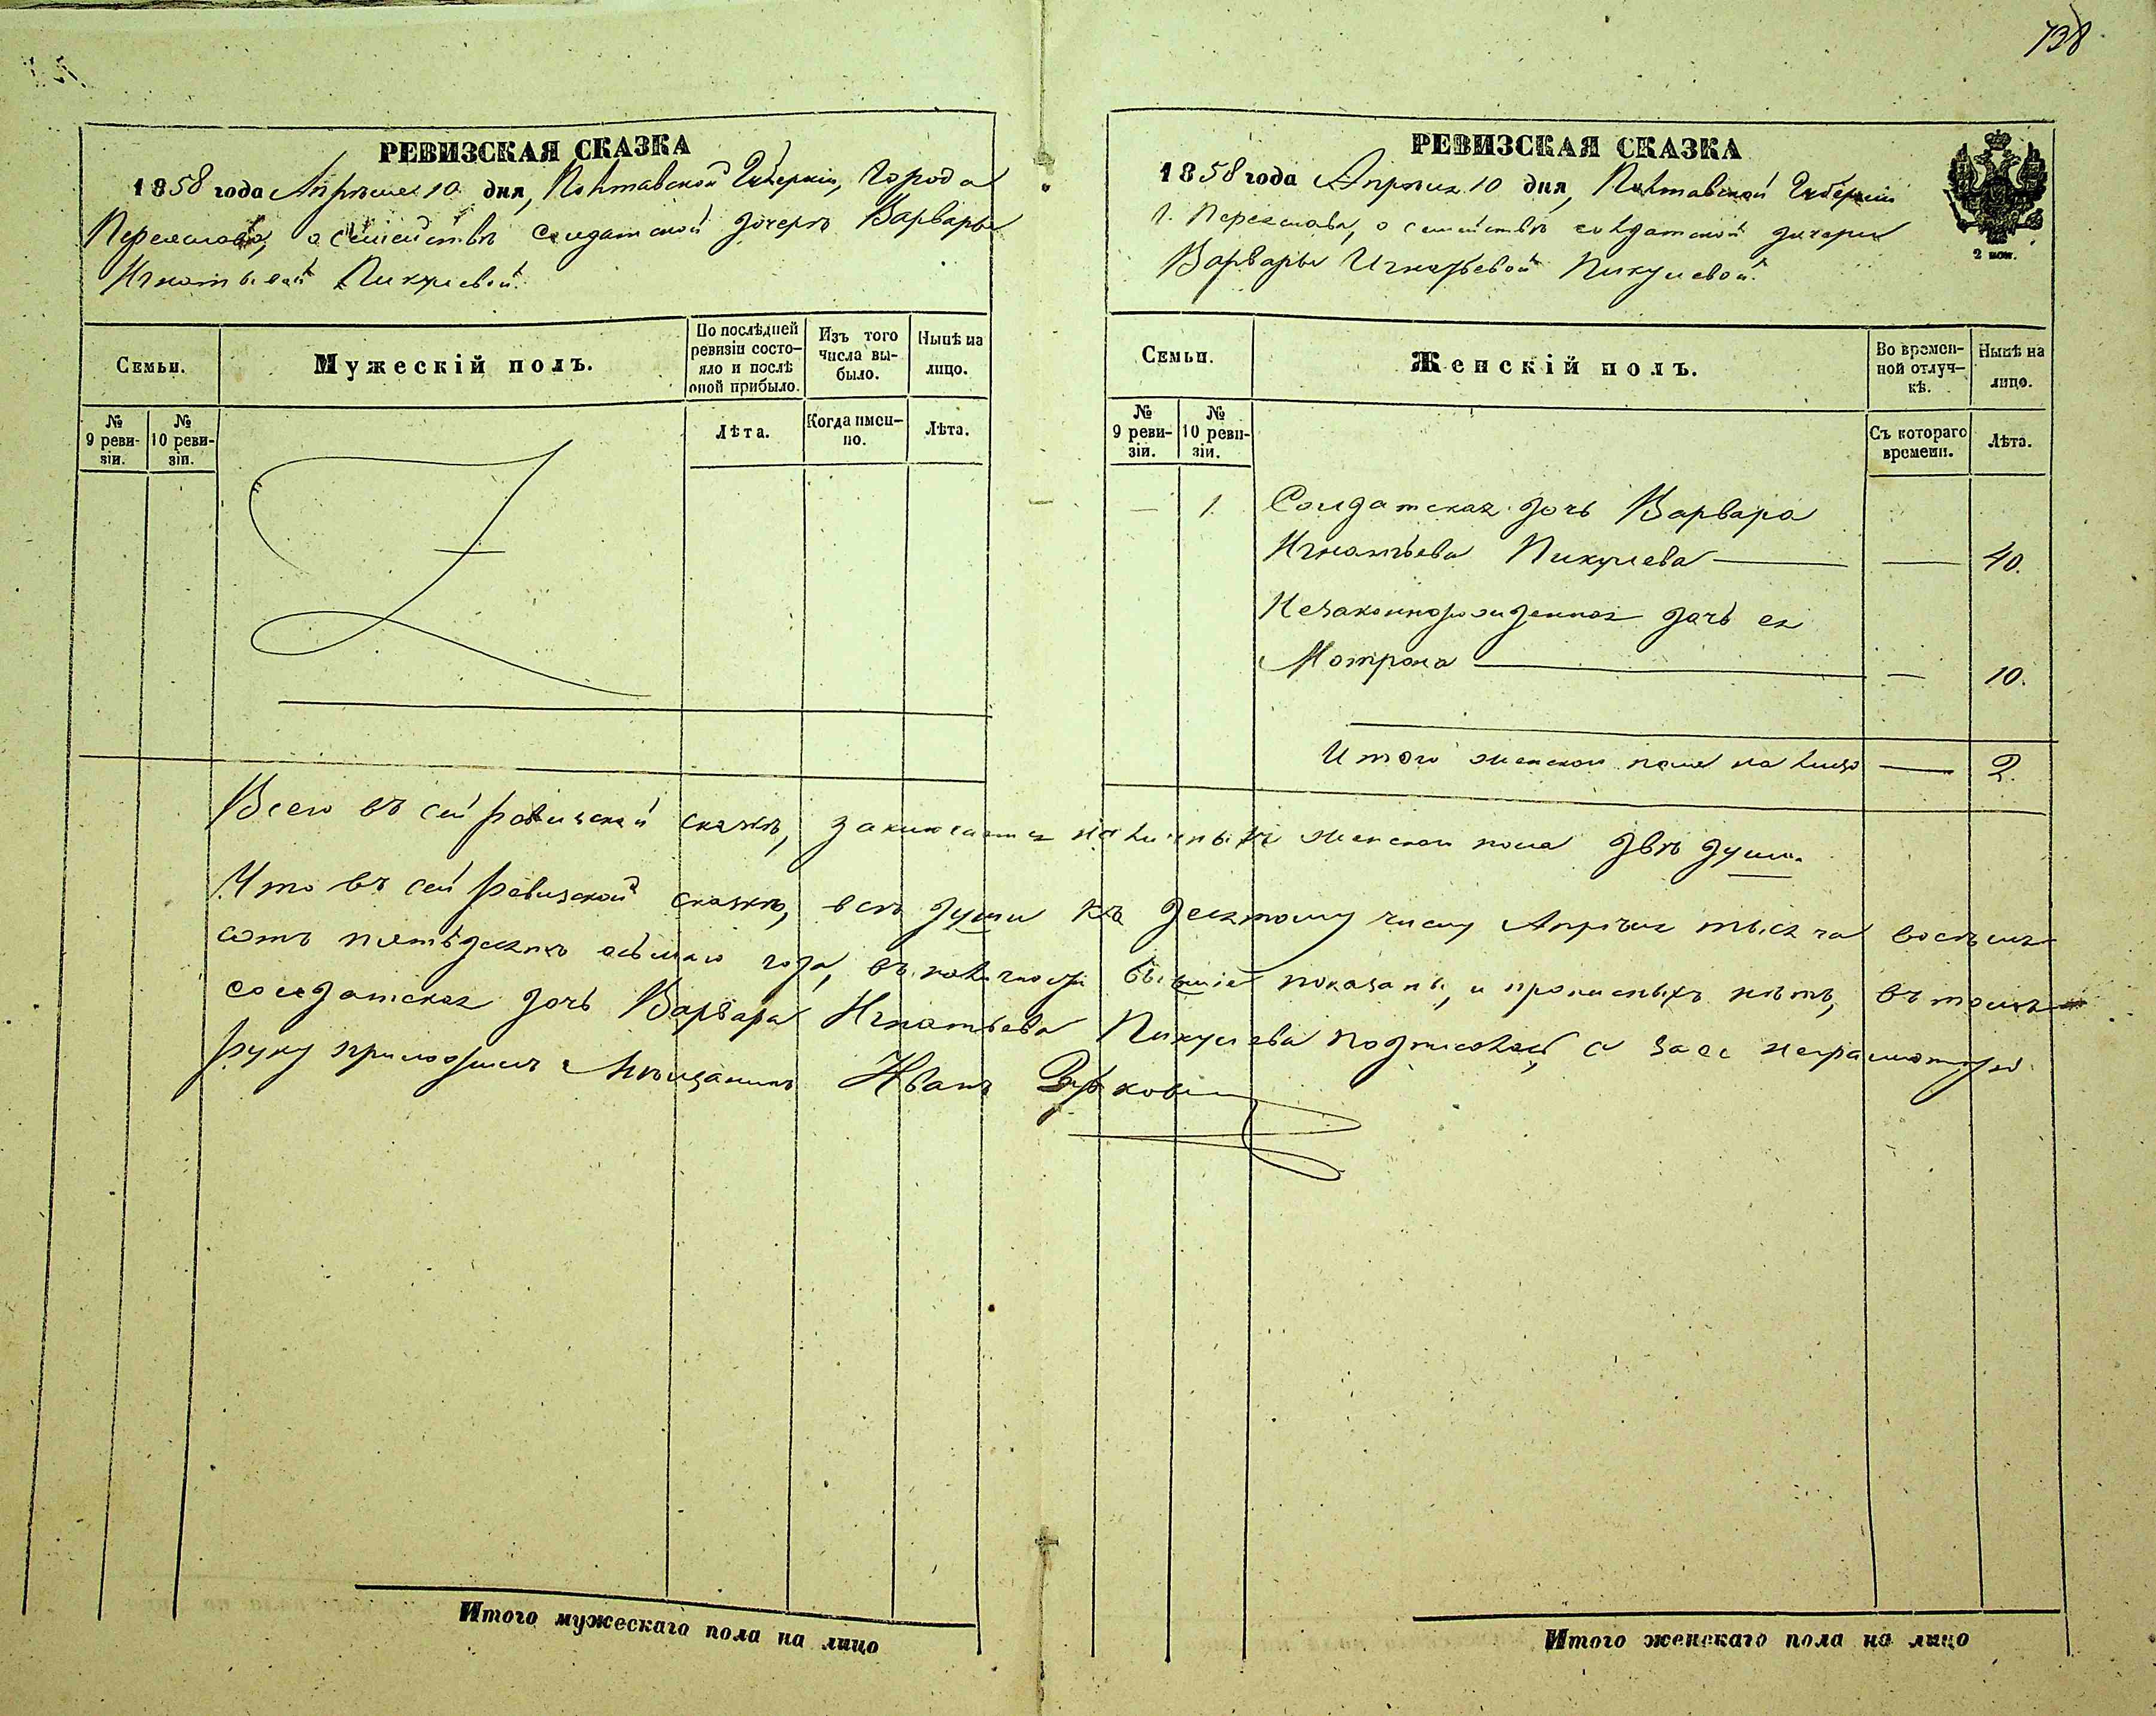 738
РЕВИЗСКАЯ СКАЗКА
1858 года Апрѣля 10 дня, Полтавской Губерніи, Города
Переяслава, о семействѣ солдатской дочерѣ Варвары
Игнатьевой Пикулевой.
Семьи.
Мужескій полъ.
По послѣдней
ревизіи состо-
яло и послѣ
оной прибыло.
Изъ того
числа вы-
было.
Нынѣ на
лицо.
№
9 реви-
зіи.
№
10 реви-
зіи.
Лѣта.
Когда имен-
но.
Лѣта.
РЕВИЗСКАЯ СКАЗКА
1858 года Апрѣля 10 дня, Полтавской Губерніи
г. Переяслава, о семействѣ солдатской дочери
Варвары Игнатьевой Пикулевой.
2 коп.
Семьи.
Женскій полъ.
Во времен-
ной отлуч-
кѣ.
Нынѣ на
лицо.
№
9 реви-
зіи.
№
10 реви-
зіи.
Съ котораго
времени.
Лѣта.
— 1. Солдатская дочь Варвара
Игнатьева Пикулева — — 40.
Незаконнорожденная дочь ея
Мотрона — — 10.
Итого женскаго пола на лицо — 2.
Всего въ сей ревизской сказкѣ, заключается наличныхъ женскаго пола двѣ души.
Что въ сей ревизской сказкѣ, всѣ души къ десятому числу Апрѣля тысяча восемь
сотъ пятьдесятъ осьмаго года, въ наличности бывшіе показаны, и прописныхъ нѣтъ, въ томъ
солдатская дочь Варвара Игнатьева Пикулева подписалась, а за ее неграмотную
руку приложилъ Мѣщанинъ Иванъ
Итого мужескаго пола на лицо
Итого женскаго пола на лицо